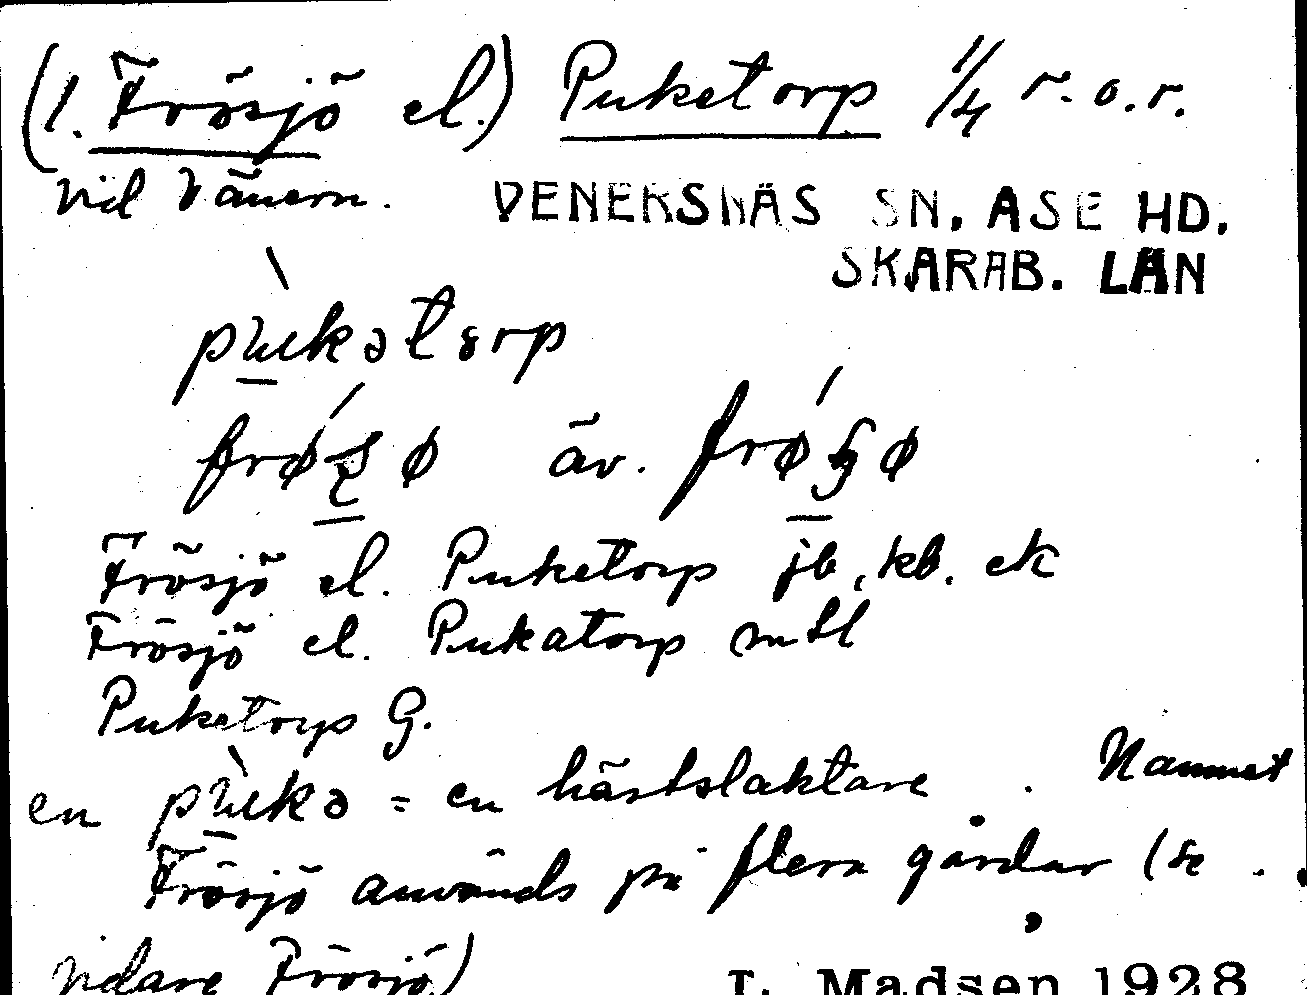 (1. Frösjö el.) Puketorp 1/4 r. o. r.
vid Vänern. VENERSNÄS SN. ASE HD.
SKARAB. LÄN
pɯ̀kətɞrp
frǿʂø äv. frǿɧø
Frösjö el. Puketorp jb, kb. ek
Frösjö el. Pukatorp mtl
Puketorp G.
en pɯ̀kə = en hästslaktare. Namnet
Frösjö används på flera gårdar (se
vidare Frösjö)
I. Madsen 1928